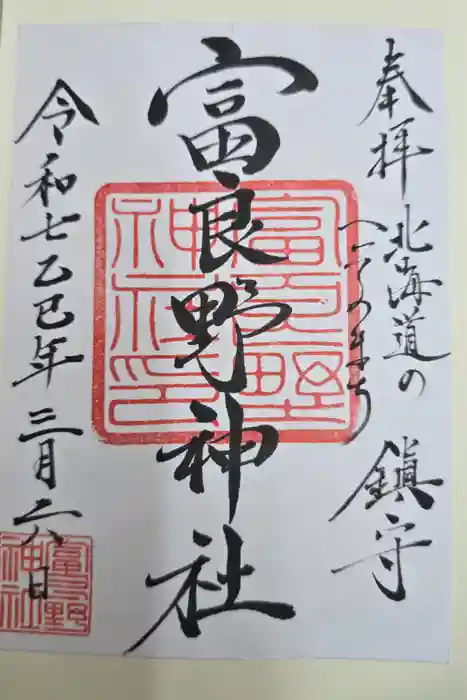 奉拝 北海道の
へそのまち
鎮守
富良野神社
富良野
神社印
令和七乙巳年 三月六日
富良野
神社